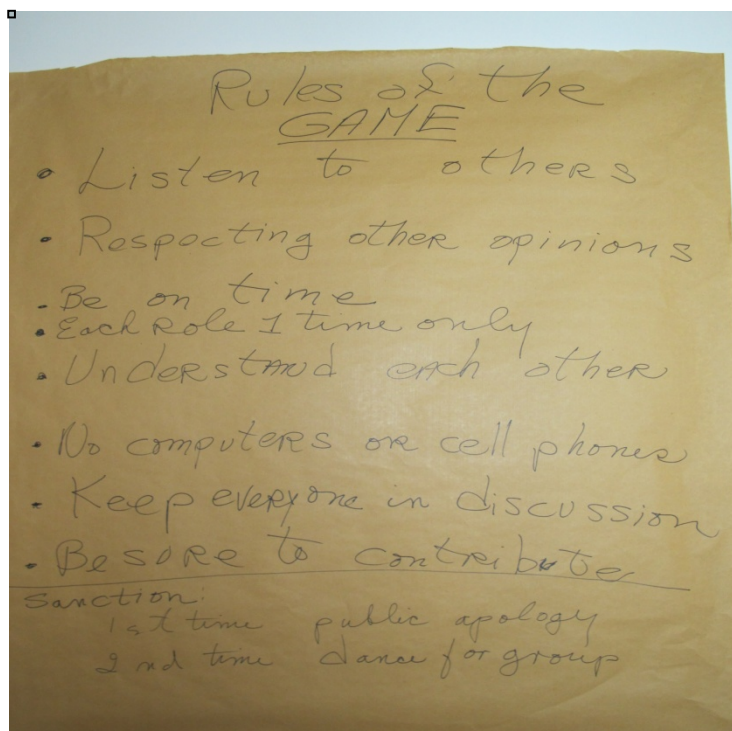 Rules of the
GAME
• Listen to others
• Respecting other opinions
- Be on time
• Each Role 1 time only
• Understand each other
• No computers or cell phones
• Keep everyone in discussion
• Be sure to contribute
Sanction:
1st time public apology
2nd time dance for group